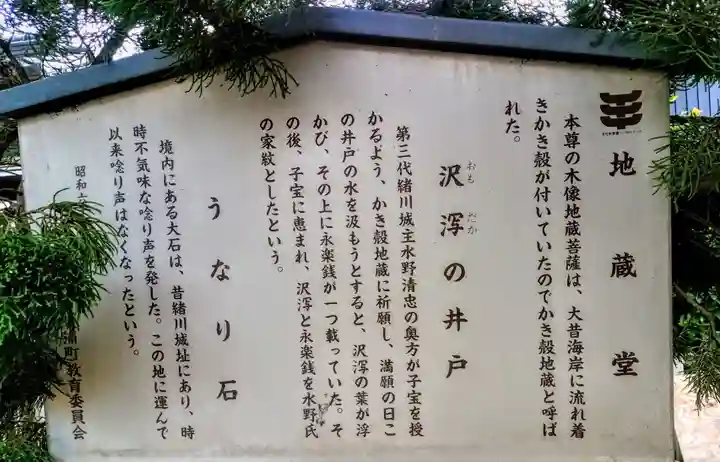 地蔵堂
本尊の木像地蔵菩薩は、大昔海岸に流れ着
きかき殻が付いていたのでかき殻地蔵と呼ば
れた。
沢瀉の井戸
おも だか
第三代緒川城主水野清忠の奥方が子宝を授
かるよう、かき殻地蔵に祈願し、満願の日こ
の井戸の水を汲もうとすると、沢瀉の葉が浮
かび、その上に永楽銭が一つ載っていた。そ
の後、子宝に恵まれ、沢瀉と永楽銭を水野氏
の家紋としたという。
うなり石
境内にある大石は、昔緒川城址にあり、時
時不気味な唸り声を発した。この地に運んで
以来唸り声はなくなったという。
昭和六
浦町教育委員会